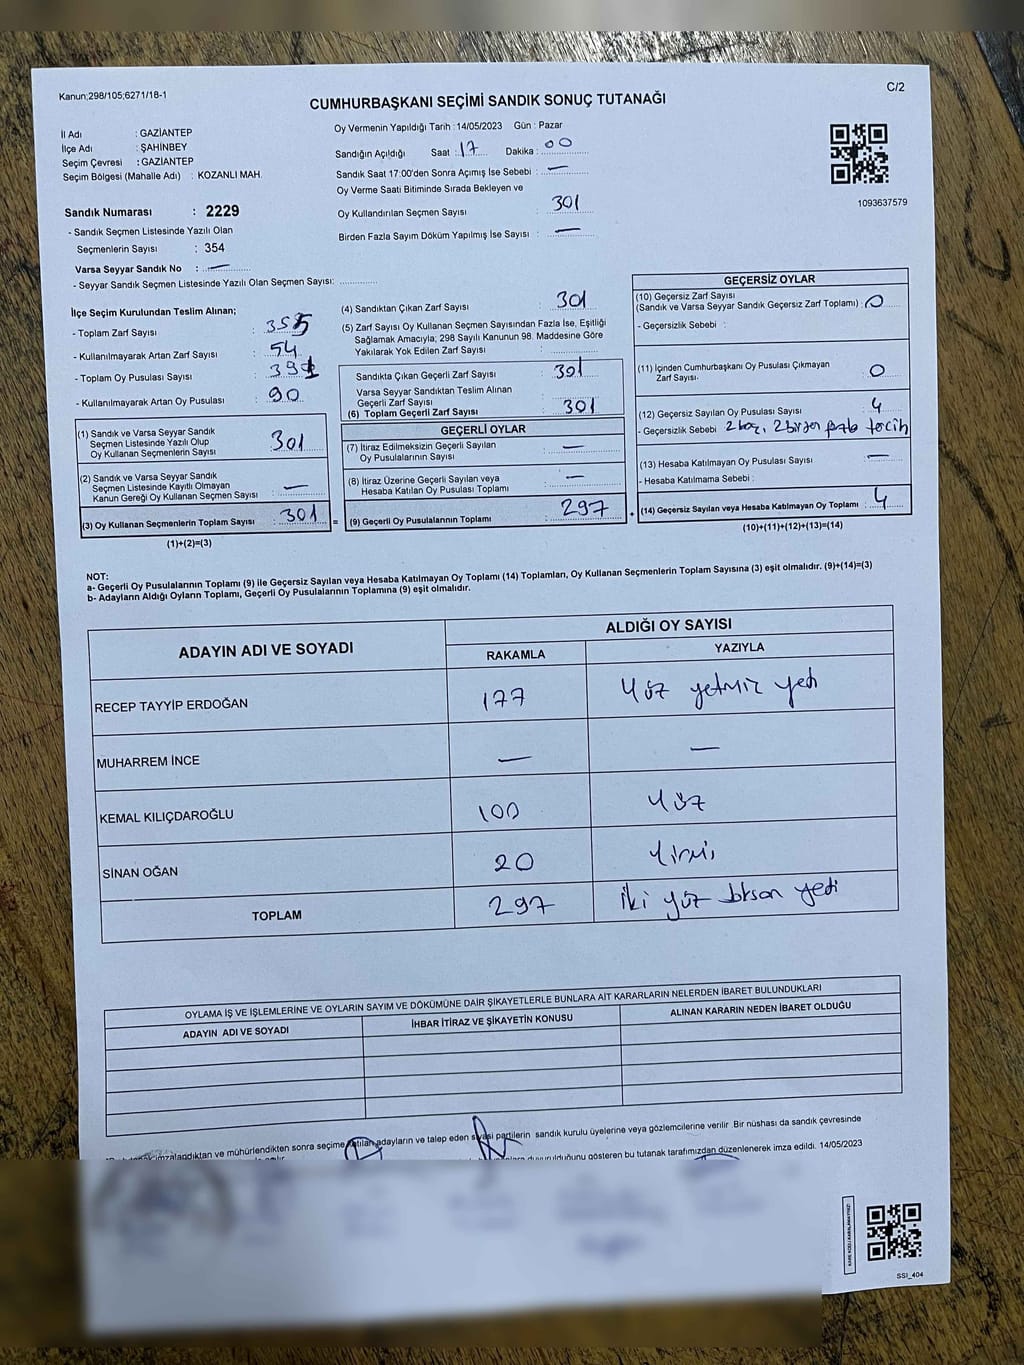 Kanun;298/105;6271/18-1
C/2
CUMHURBAŞKANI SEÇİMİ SANDIK SONUÇ TUTANAĞI
İl Adı : GAZİANTEP
İlçe Adı : ŞAHİNBEY
Seçim Çevresi : GAZİANTEP
Seçim Bölgesi (Mahalle Adı) : KOZANLI MAH.
Sandık Numarası : 2229
- Sandık Seçmen Listesinde Yazılı Olan
Seçmenlerin Sayısı : 354
Varsa Seyyar Sandık No : —
- Seyyar Sandık Seçmen Listesinde Yazılı Olan Seçmen Sayısı:
Oy Vermenin Yapıldığı Tarih :14/05/2023 Gün : Pazar
Sandığın Açıldığı Saat : 17 Dakika : 00
Sandık Saat 17:00'den Sonra Açımış İse Sebebi : —
Oy Verme Saati Bitiminde Sırada Bekleyen ve
Oy Kullandırılan Seçmen Sayısı : 301
Birden Fazla Sayım Döküm Yapılmış İse Sayısı : —
1093637579
İlçe Seçim Kurulundan Teslim Alınan;
- Toplam Zarf Sayısı : 355
- Kullanılmayarak Artan Zarf Sayısı : 54
- Toplam Oy Pusulası Sayısı : 391
- Kullanılmayarak Artan Oy Pusulası : 90
(1) Sandık ve Varsa Seyyar Sandık
Seçmen Listesinde Yazılı Olup
Oy Kullanan Seçmenlerin Sayısı 301
(2) Sandık ve Varsa Seyyar Sandık
Seçmen Listesinde Kayıtlı Olmayan
Kanun Gereği Oy Kullanan Seçmen Sayısı : —
(3) Oy Kullanan Seçmenlerin Toplam Sayısı : 301
(1)+(2)=(3)
(4) Sandıktan Çıkan Zarf Sayısı : 301
(5) Zarf Sayısı Oy Kullanan Seçmen Sayısından Fazla İse, Eşitliği
Sağlamak Amacıyla; 298 Sayılı Kanunun 98. Maddesine Göre
Yakılarak Yok Edilen Zarf Sayısı :
Sandıkta Çıkan Geçerli Zarf Sayısı : 301
Varsa Seyyar Sandıktan Teslim Alınan
Geçerli Zarf Sayısı :
(6) Toplam Geçerli Zarf Sayısı : 301
GEÇERLİ OYLAR
(7) İtiraz Edilmeksizin Geçerli Sayılan
Oy Pusulalarının Sayısı : —
(8) İtiraz Üzerine Geçerli Sayılan veya
Hesaba Katılan Oy Pusulası Toplamı : —
= (9) Geçerli Oy Pusulalarının Toplamı : 297
GEÇERSİZ OYLAR
(10) Geçersiz Zarf Sayısı
(Sandık ve Varsa Seyyar Sandık Geçersiz Zarf Toplamı) : 0
- Geçersizlik Sebebi :
(11) İçinden Cumhurbaşkanı Oy Pusulası Çıkmayan
Zarf Sayısı. : 0
(12) Geçersiz Sayılan Oy Pusulası Sayısı : 4
- Geçersizlik Sebebi 2 boş, 2 birden fazla tercih
(13) Hesaba Katılmayan Oy Pusulası Sayısı : —
- Hesaba Katılmama Sebebi :
+ (14) Geçersiz Sayılan veya Hesaba Katılmayan Oy Toplamı : 4
(10)+(11)+(12)+(13)=(14)
NOT:
a- Geçerli Oy Pusulalarının Toplamı (9) ile Geçersiz Sayılan veya Hesaba Katılmayan Oy Toplamı (14) Toplamları, Oy Kullanan Seçmenlerin Toplam Sayısına (3) eşit olmalıdır. (9)+(14)=(3)
b- Adayların Aldığı Oyların Toplamı, Geçerli Oy Pusulalarının Toplamına (9) eşit olmalıdır.
ADAYIN ADI VE SOYADI ALDIĞI OY SAYISI
RAKAMLA YAZIYLA
RECEP TAYYİP ERDOĞAN 177 Yüz yetmiş yedi
MUHARREM İNCE — —
KEMAL KILIÇDAROĞLU 100 Yüz
SİNAN OĞAN 20 Yirmi
TOPLAM 297 İki yüz doksan yedi
OYLAMA İŞ VE İŞLEMLERİNE VE OYLARIN SAYIM VE DÖKÜMÜNE DAİR ŞİKAYETLERLE BUNLARA AİT KARARLARIN NELERDEN İBARET BULUNDUKLARI
ADAYIN ADI VE SOYADI İHBAR İTİRAZ VE ŞİKAYETİN KONUSU ALINAN KARARIN NEDEN İBARET OLDUĞU
imzalandıktan ve mühürlendikten sonra seçime katılan adayların ve talep eden siyasi partilerin sandık kurulu üyelerine veya gözlemcilerine verilir .Bir nüshası da sandık çevresinde
duyurulduğunu gösteren bu tutanak tarafımızdan düzenlenerek imza edildi. 14/05/2023
SSİ_404